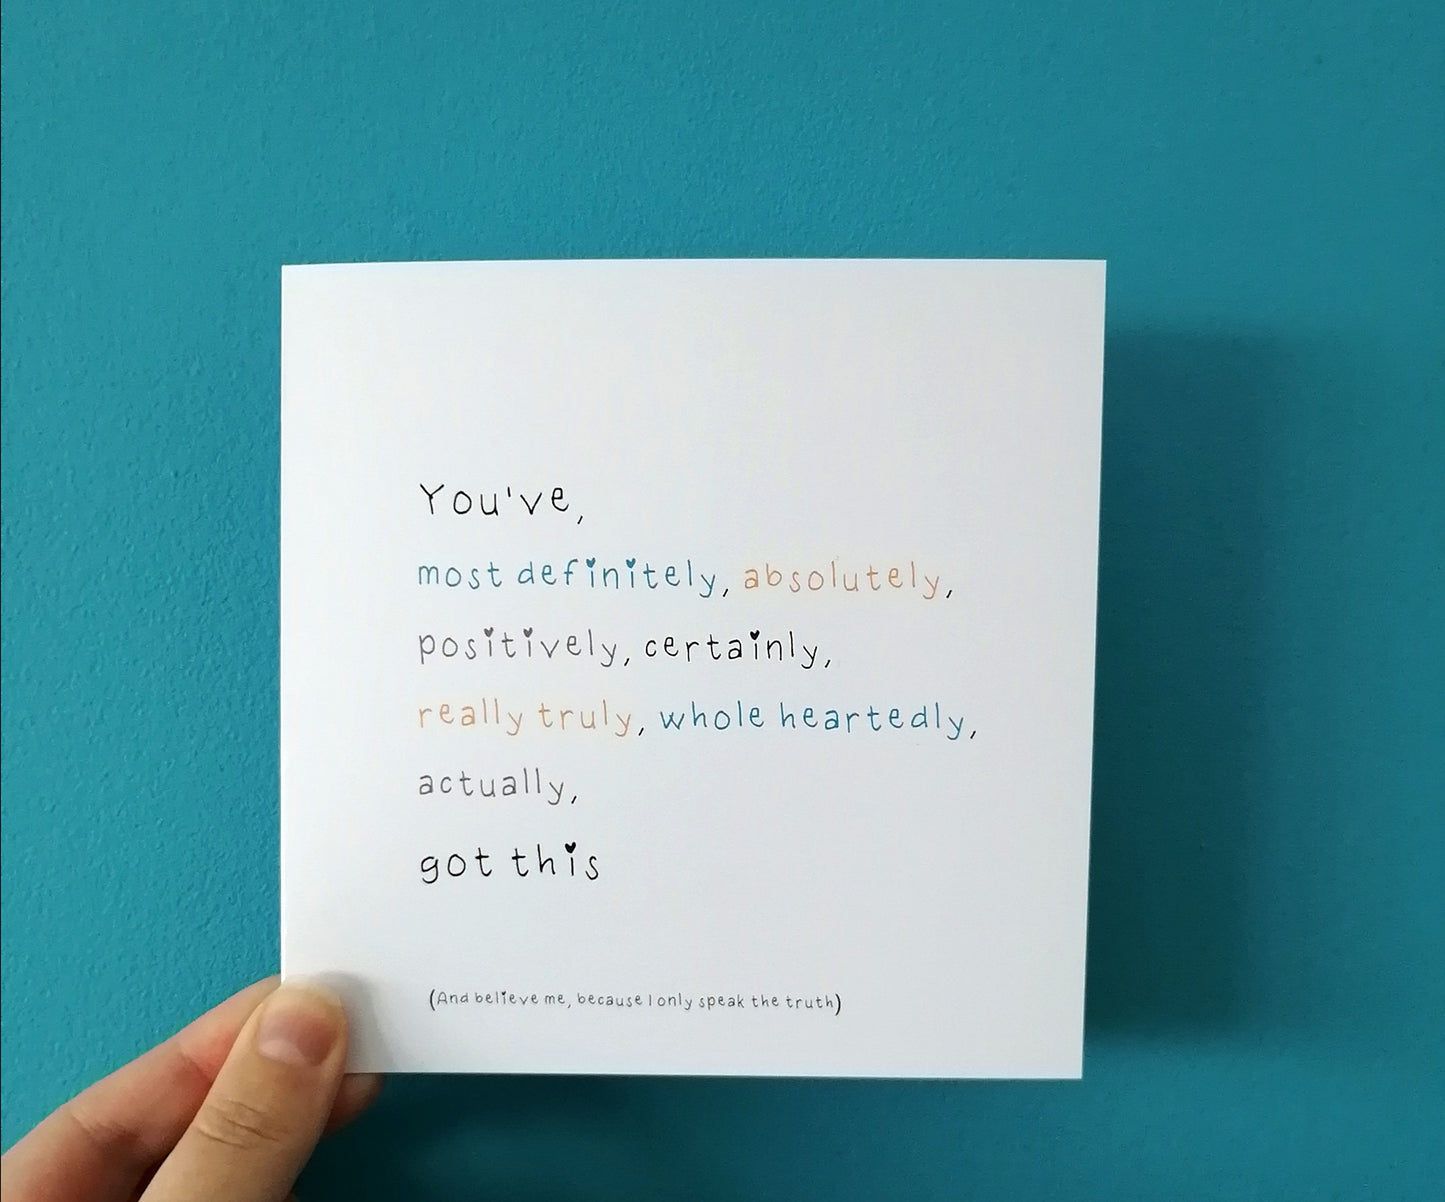 You've,
most definitely, absolutely,
positively, certainly,
really truly, whole heartedly,
actually,
got this
(And believe me, because I only speak the truth)